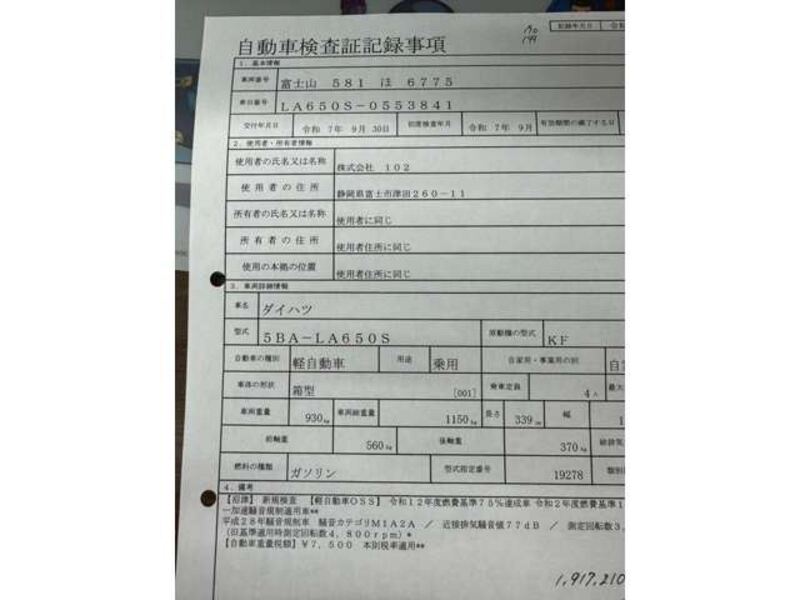 170
199
記録年月日 令和
自動車検査証記録事項
1．基本情報
車両番号 富士山 581 ほ 6775
車台番号 LA650S-0553841
交付年月日 令和 7年 9月 30日 初度検査年月 令和 7年 9月 有効期間の満了する日
2．使用者・所有者情報
使用者の氏名又は名称 株式会社 102
使用者の住所 静岡県富士市津田260-11
所有者の氏名又は名称 使用者に同じ
所有者の住所 使用者住所に同じ
使用の本拠の位置 使用者住所に同じ
3．車両詳細情報
車名 ダイハツ
型式 5BA-LA650S 原動機の型式 KF
自動車の種別 軽自動車 用途 乗用 自家用・事業用の別 自
車体の形状 箱型 [001] 乗車定員 4人 最大
車両重量 930kg 車両総重量 1150kg 長さ 339cm 幅 1
前軸重 560kg 後軸重 370kg 総排気
燃料の種類 ガソリン 型式指定番号 19278 類別
4．備考
【沼津】 新規検査 【軽自動車OSS】 令和12年度燃費基準75%達成車 令和2年度燃費基準1
一加速騒音規制適用車**
平成28年騒音規制車 騒音カテゴリM1A2A ／ 近接排気騒音値77dB ／ 測定回転数3,
(旧基準適用時測定回転数4,800rpm)*
【自動車重量税額】¥7,500 本則税率適用**
1,917,210